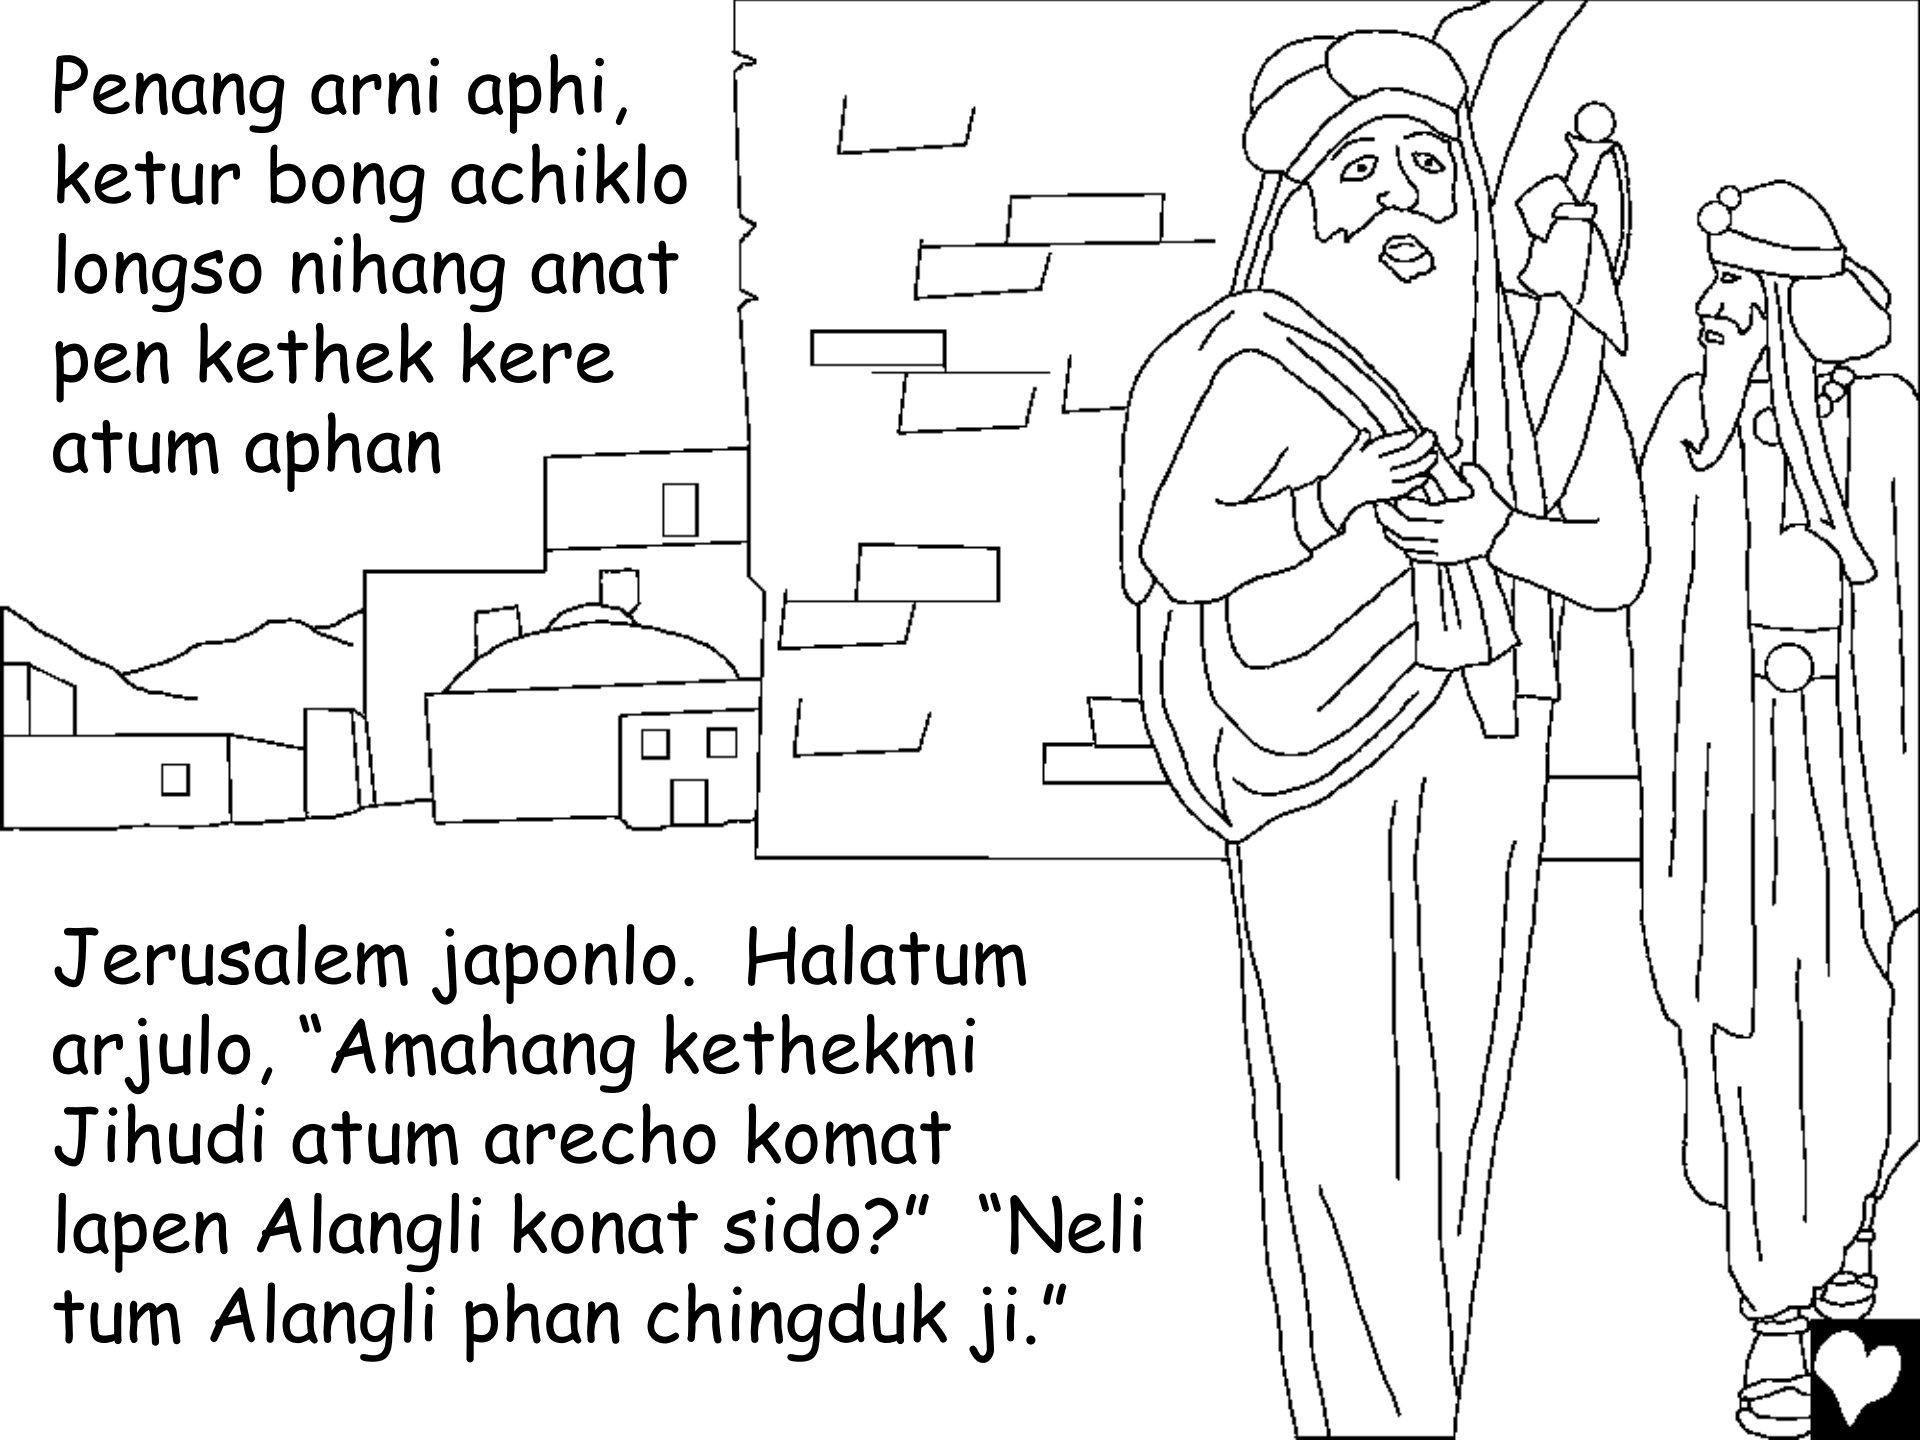 Penang arni aphi,
ketur bong achiklo
longso nihang anat
pen kethek kere
atum aphan
Jerusalem japonlo. Halatum
arjulo, “Amahang kethekmi
Jihudi atum arecho komat
lapen Alangli konat sido?” “Neli
tum Alangli phan chingduk ji.”